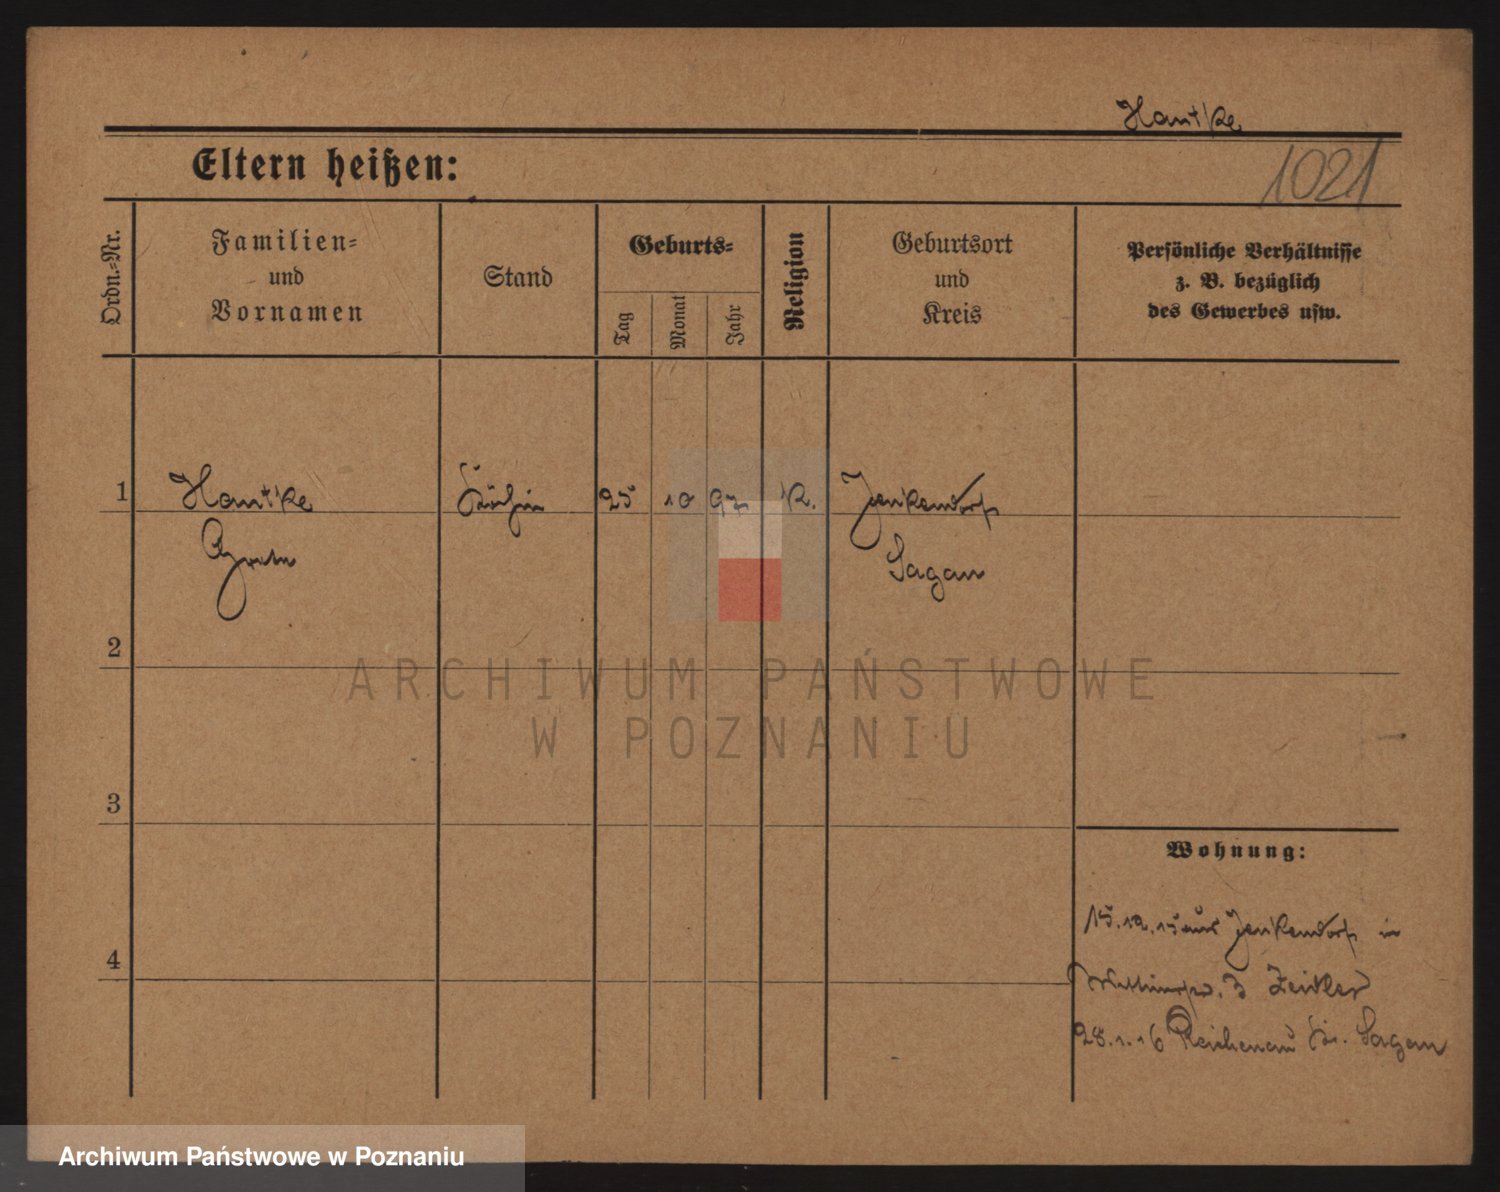 Hantke
1021
Eltern heißen:
Ordn.=Nr.
Familien=
und
Vornamen
Stand
Geburts=
Tag
Monat
Jahr
Religion
Geburtsort
und
Kreis
Persönliche Verhältnisse
z. B. bezüglich
des Gewerbes usw.
1
Hantke
Köchin
25
10
97
K.
Jenkendorf
Sagan
2
ARCHIWUM PAŃSTWOWE
W POZNANIU
3
Wohnung:
15.12.15 aus Jenkendorf in
3 Zeidler
4
28.1.16 Reichenau Kr. Sagan
Archiwum Państwowe w Poznaniu